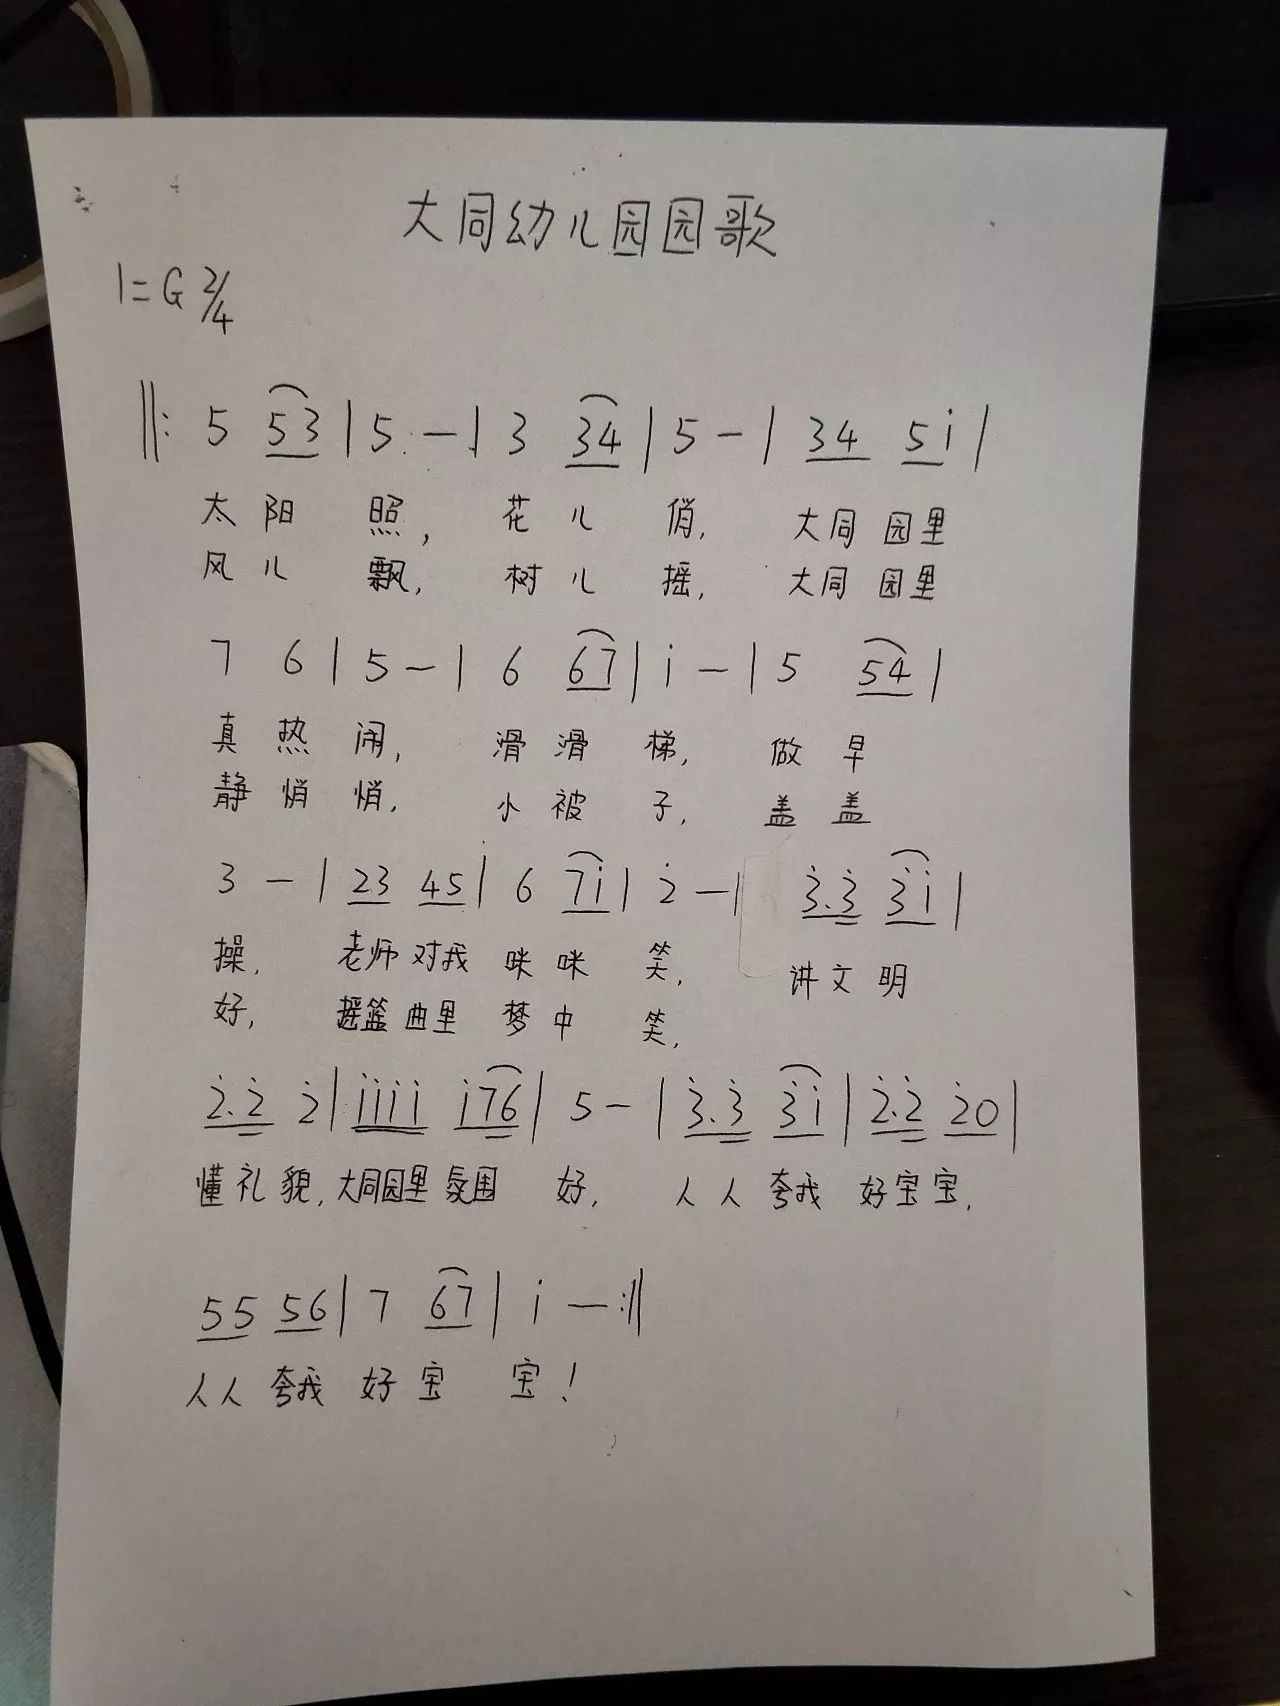 大同幼儿园园歌
1=G 2/4
‖: 5 53 | 5 - | 3 34 | 5 - | 34 5i |
太阳 照， 花儿 俏， 大同 园里
风儿 飘， 树儿 摇， 大同 园里
7 6 | 5 - | 6 67 | i - | 5 54 |
真热闹， 滑滑 梯， 做早
静悄悄， 小被 子， 盖盖
3 - | 23 45 | 6 7i | 2̇ - | 3̇.3̇ 3̇i |
操， 老师对我 咪咪 笑， 讲文明
好， 摇篮曲里 梦中 笑，
2̇.2̇ 2̇ | iiii i76 | 5 - | 3̇.3̇ 3̇i | 2̇.2̇ 2̇0 |
懂礼貌，大同园里氛围 好， 人人夸我 好宝宝，
55 56 | 7 67 | i - :‖
人人 夸我 好宝 宝！